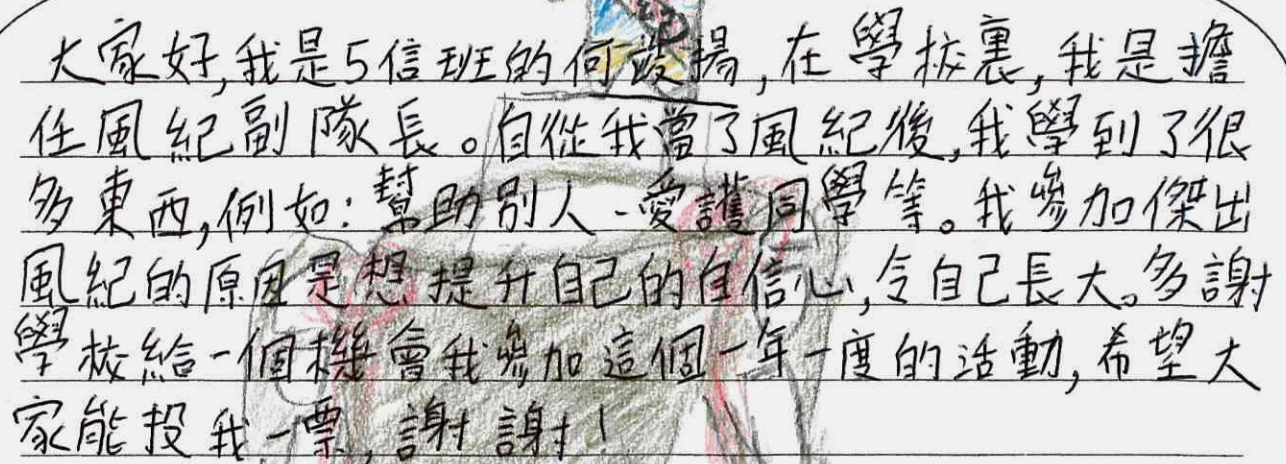 大家好,我是5信班的何竣揚,在學校裏,我是擔
任風紀副隊長。自從我當了風紀後,我學到了很
多東西,例如:幫助別人、愛護同學等。我參加傑出
風紀的原因是想提升自己的自信心,令自己長大。多謝
學校給一個機會我參加這個一年一度的活動,希望大
家能投我一票,謝謝!